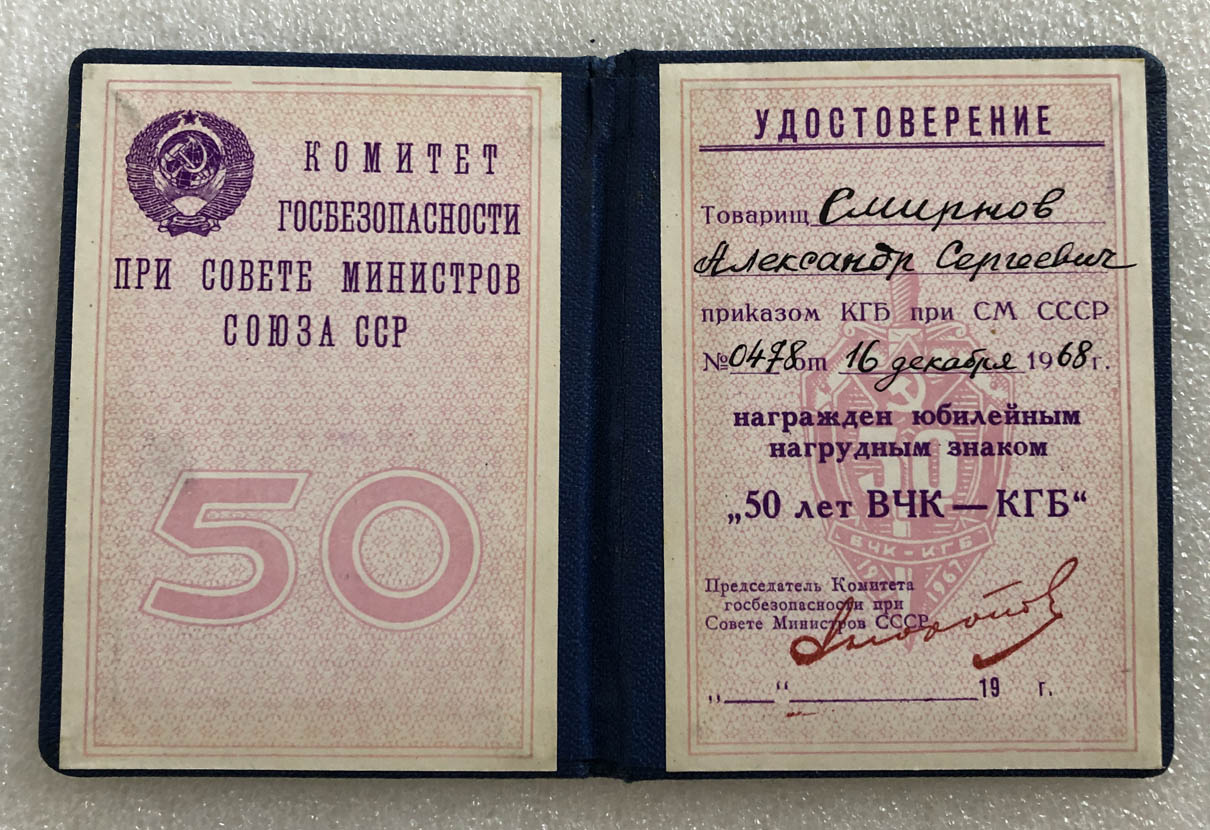 КОМИТЕТ
ГОСБЕЗОПАСНОСТИ
ПРИ СОВЕТЕ МИНИСТРОВ
СОЮЗА ССР
50
УДОСТОВЕРЕНИЕ
Товарищ Смирнов
Александр Сергеевич
приказом КГБ при СМ СССР
№ 0478 от 16 декабря 1968 г.
награжден юбилейным
нагрудным знаком
„50 лет ВЧК — КГБ“
50
ВЧК-КГБ
1967
Председатель Комитета
госбезопасности при
Совете Министров СССР
Андропов
„___“ ____________ 19 г.